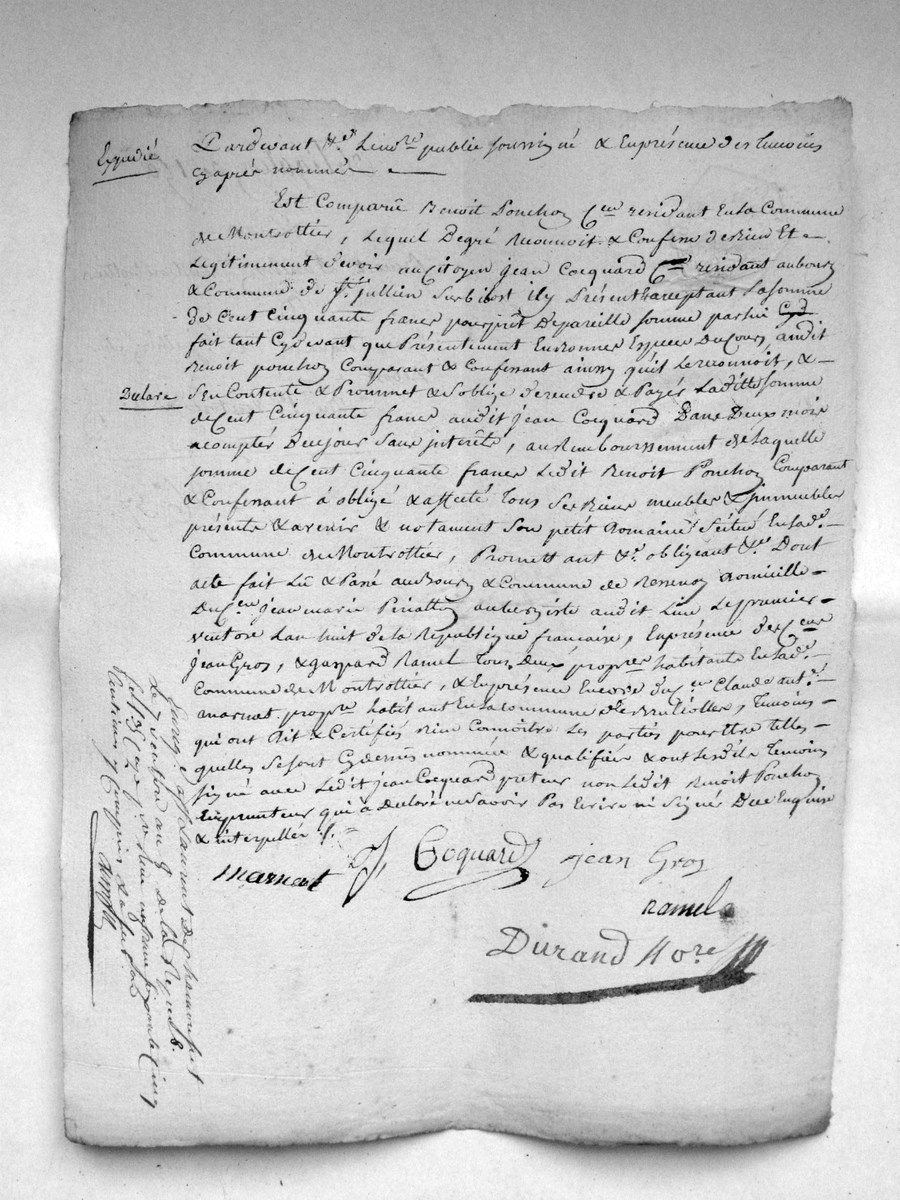 Expedié
Pardevant Le no.re public soussigné & En présence des temoins
cy après nommés
Est Comparü Benoit Ponchon C.en résidant En la Commune
de Montrottier, Lequel De gré Reconnoit & Confesse devoir bien Et
Legitimement devoir au Citoyen jean Cocquard C.en residant au bourg
& Commune de S.t jullien Sur bibost ily Présent & acceptant La somme
de Cent Cinquante francs pour prêt De pareille somme par lui
fait tant Cydevant que Présentement En bonnes Especes Du Cours, audit
Benoit ponchon Comparant & Confessant ainsy qu'il Le reconnoit, &
Declare
s'En Contente & Prommet & S'oblige de rendre & Payer Laditte somme
de Cent Cinquante francs audit jean Cocquard Dans Deux mois
a compter De ce jour Sans interêts, au Remboursement de Laquelle
somme de Cent Cinquante francs Ledit Benoit Ponchon Comparant
& Confessant á obligé & affecté Tous Ses Biens meubles & immeubles
présents & avenir & notament Son petit Domaine Scitué En lad.e
Commune de Montrottier, Promettant &.a obligeant &.a Dont
acte fait Lû & Passé au Bourg & Commune de Domicille
Du C.en jean marie aubergiste audit Lieu Le premier
ventose L'an huit de la Republique francaise, En présence des C.ens
jean Gros, & gaspard Ramel Tous Deux propr.es habitants En lad.e
Commune de Montrottier, & En présence Encore du C.en Claude ant.e
marnat propr.e habitant En la Commune de Temoins
qui ont Dit & Certifiés bien Connoitre Les parties pour Etre telles
quelles Se sont Cydessus nommées & qualifiées & ont Lesdits Temoins
signé avec Ledit jean Cocquard preteur non Ledit Benoit Ponchon
Emprunteur qui à Declaré ne Savoir Ecrire ni Signer De ce Enquis
& interpellé
marnat J, Cocquard jean Gros
ramel
Durand No.re
Le 7 ventose an 8 de La Rep.